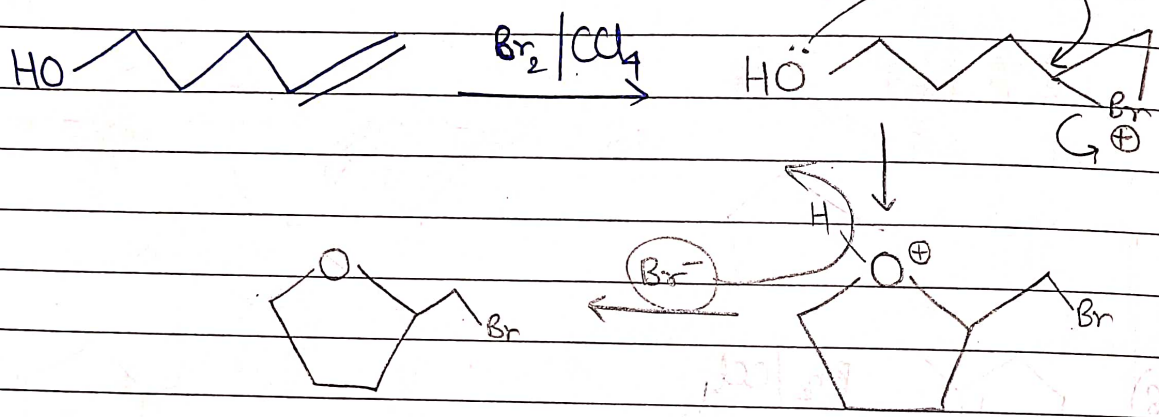 HO
Br₂/CCl₄
HÖ
Br
⊕
H
O⊕
Br
Br⁻
O
Br